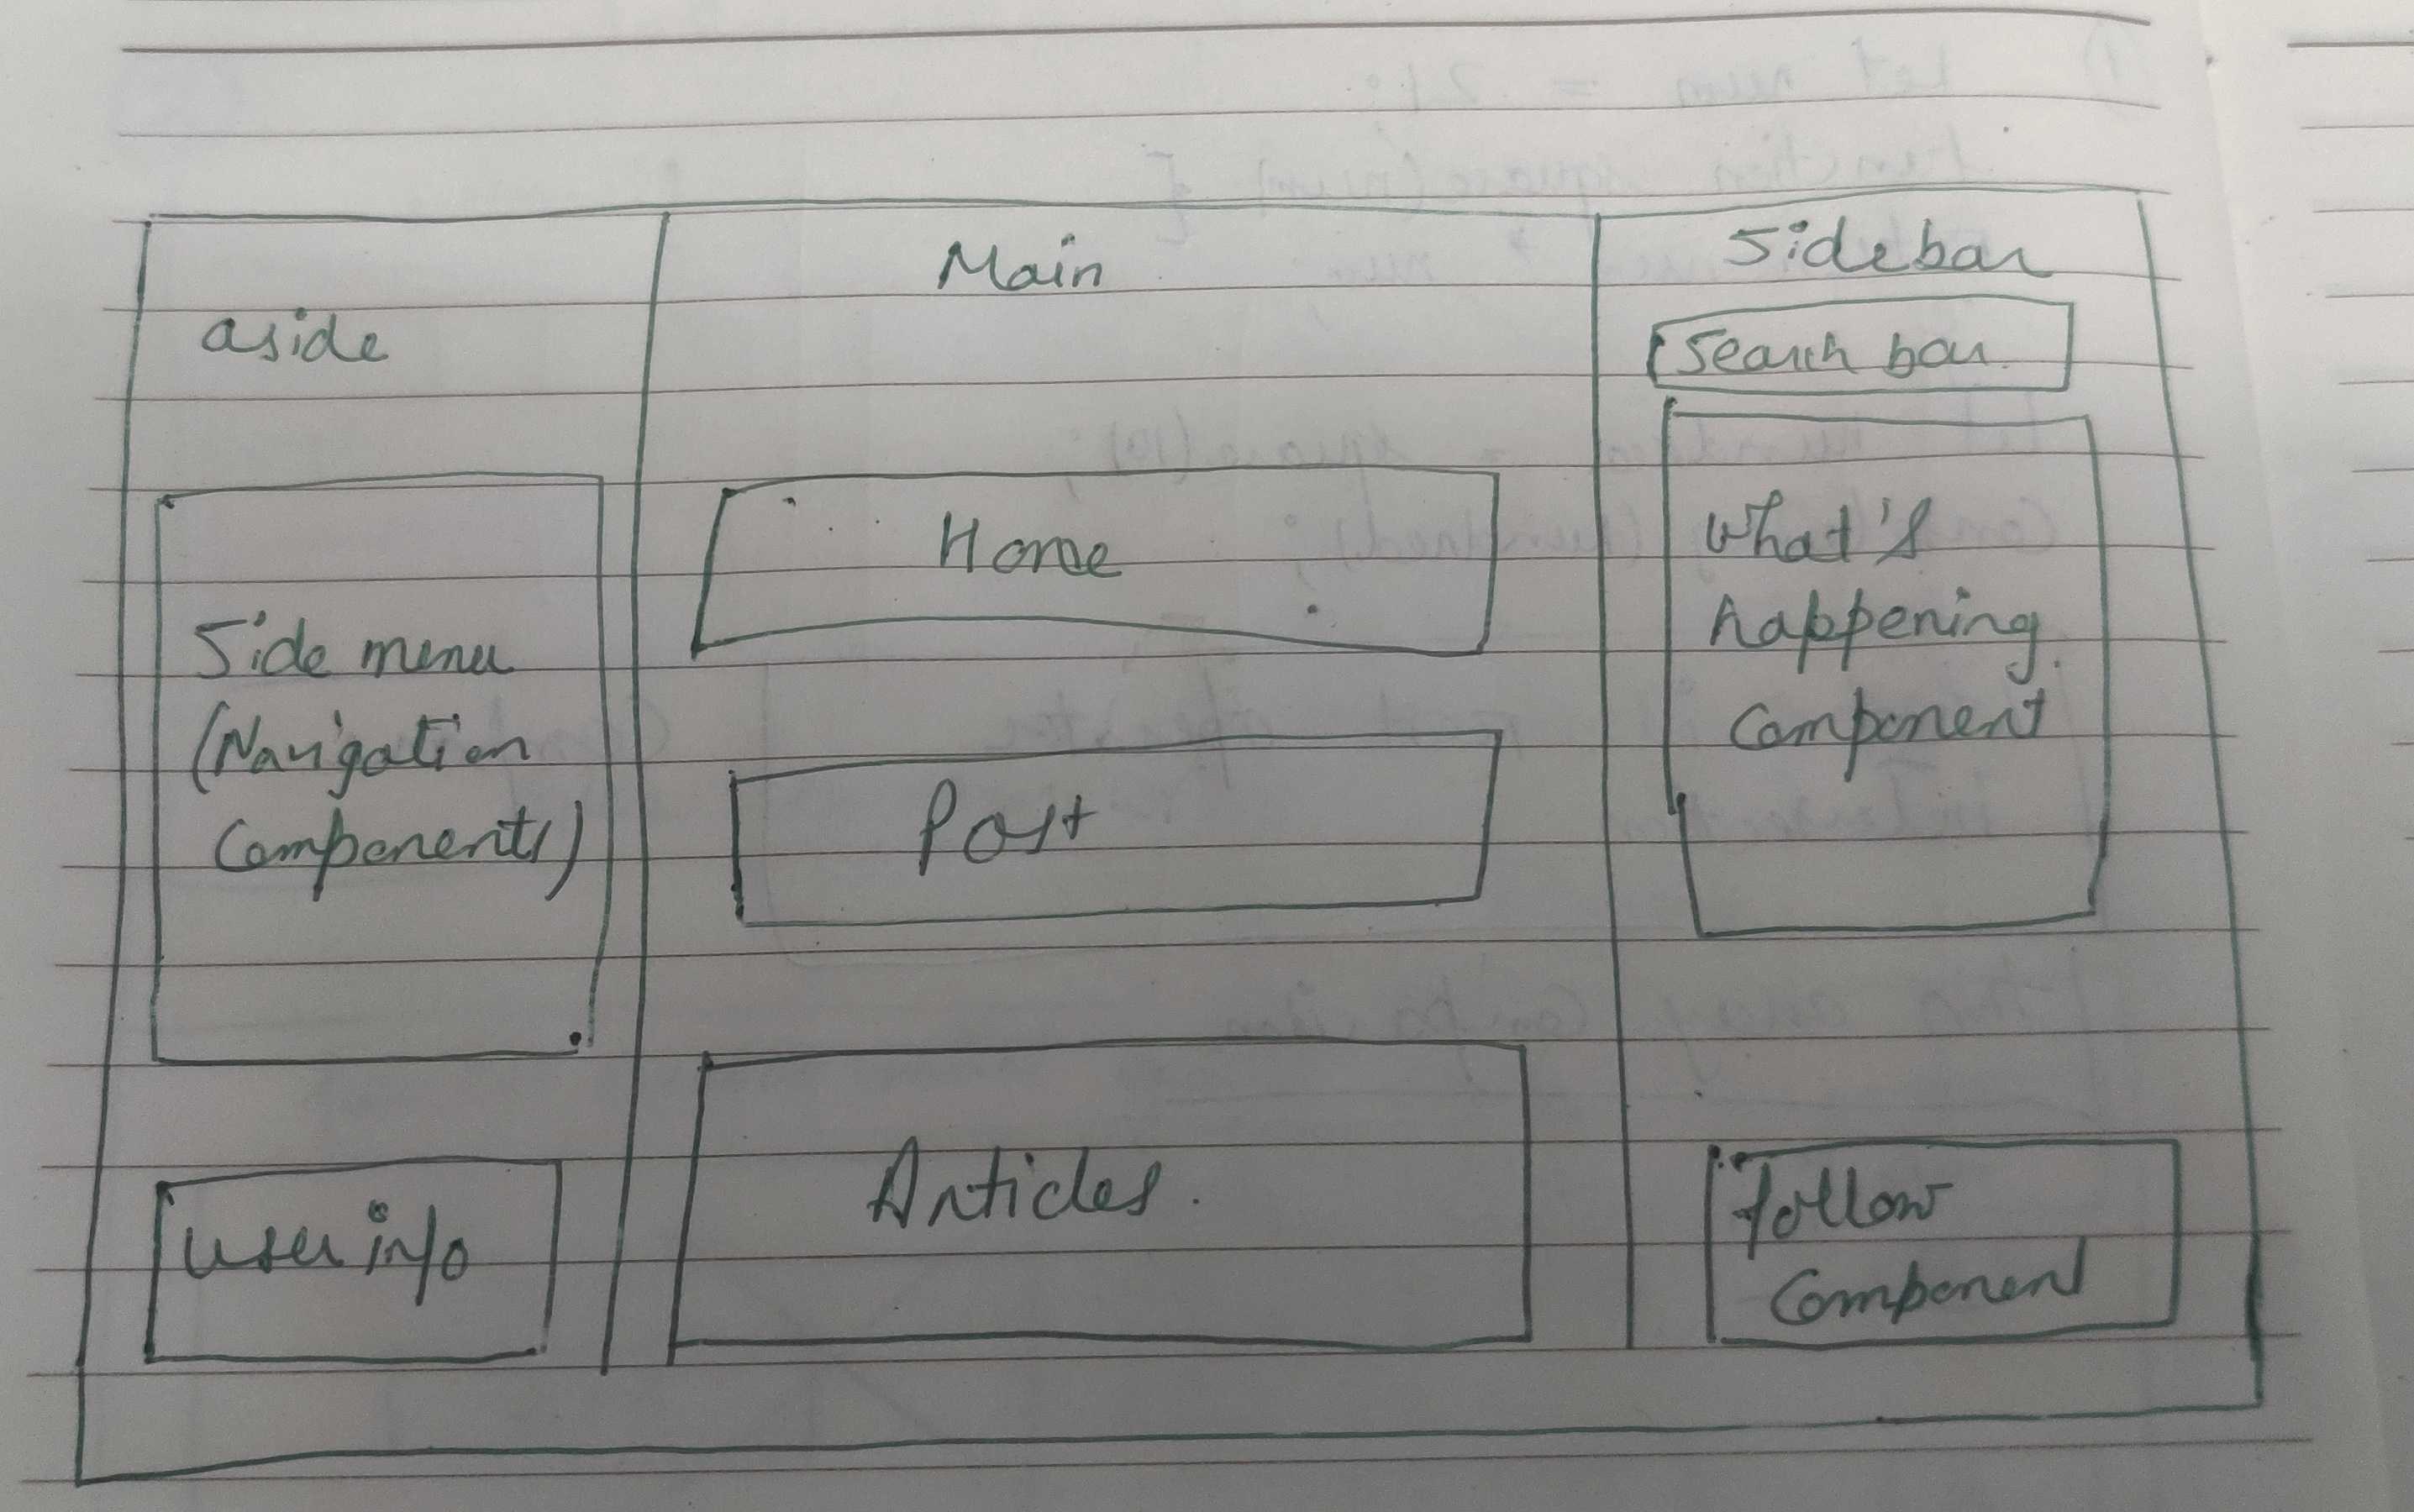 aside
Side menu
(Navigation
Components)
user info
Main
Home
Post
Articles.
Sidebar
Search bar
What's
happening
Component
follow
Component